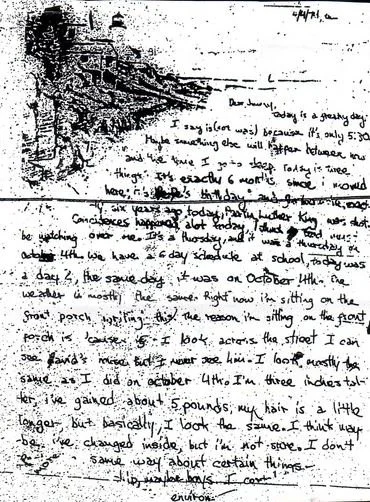 Dear Jenny,
Today is a freaky day.
I say is (not was) because it's only 5:30
Maybe something else will happen between now
and the time I go to sleep. Today is three
things. It's exactly 6 months since I moved
here, it's birthday and
six years ago today, Martin Luther King was shot.
Coincidences happened alot today, I think God must
be watching over me. It's a Thursday, and it was a Thursday on
October 4th. We have a 6 day schedule at school, today was
a day 2, the same day it was on October 4th. The
weather is mostly the same. Right now I'm sitting on the
front porch writing this. The reason I'm sitting on the front
porch is 'cause if I look across the street I can
see David's house but I never see him. I look mostly the
same as I did on October 4th. I'm three inches tal-
ler, i've gained about 5 pounds, my hair is a little
longer, but basically, I look the same. I think may
be i've changed inside, but i'm not sure. I don't
same way about certain things-
maybe boys. I can't
environ-